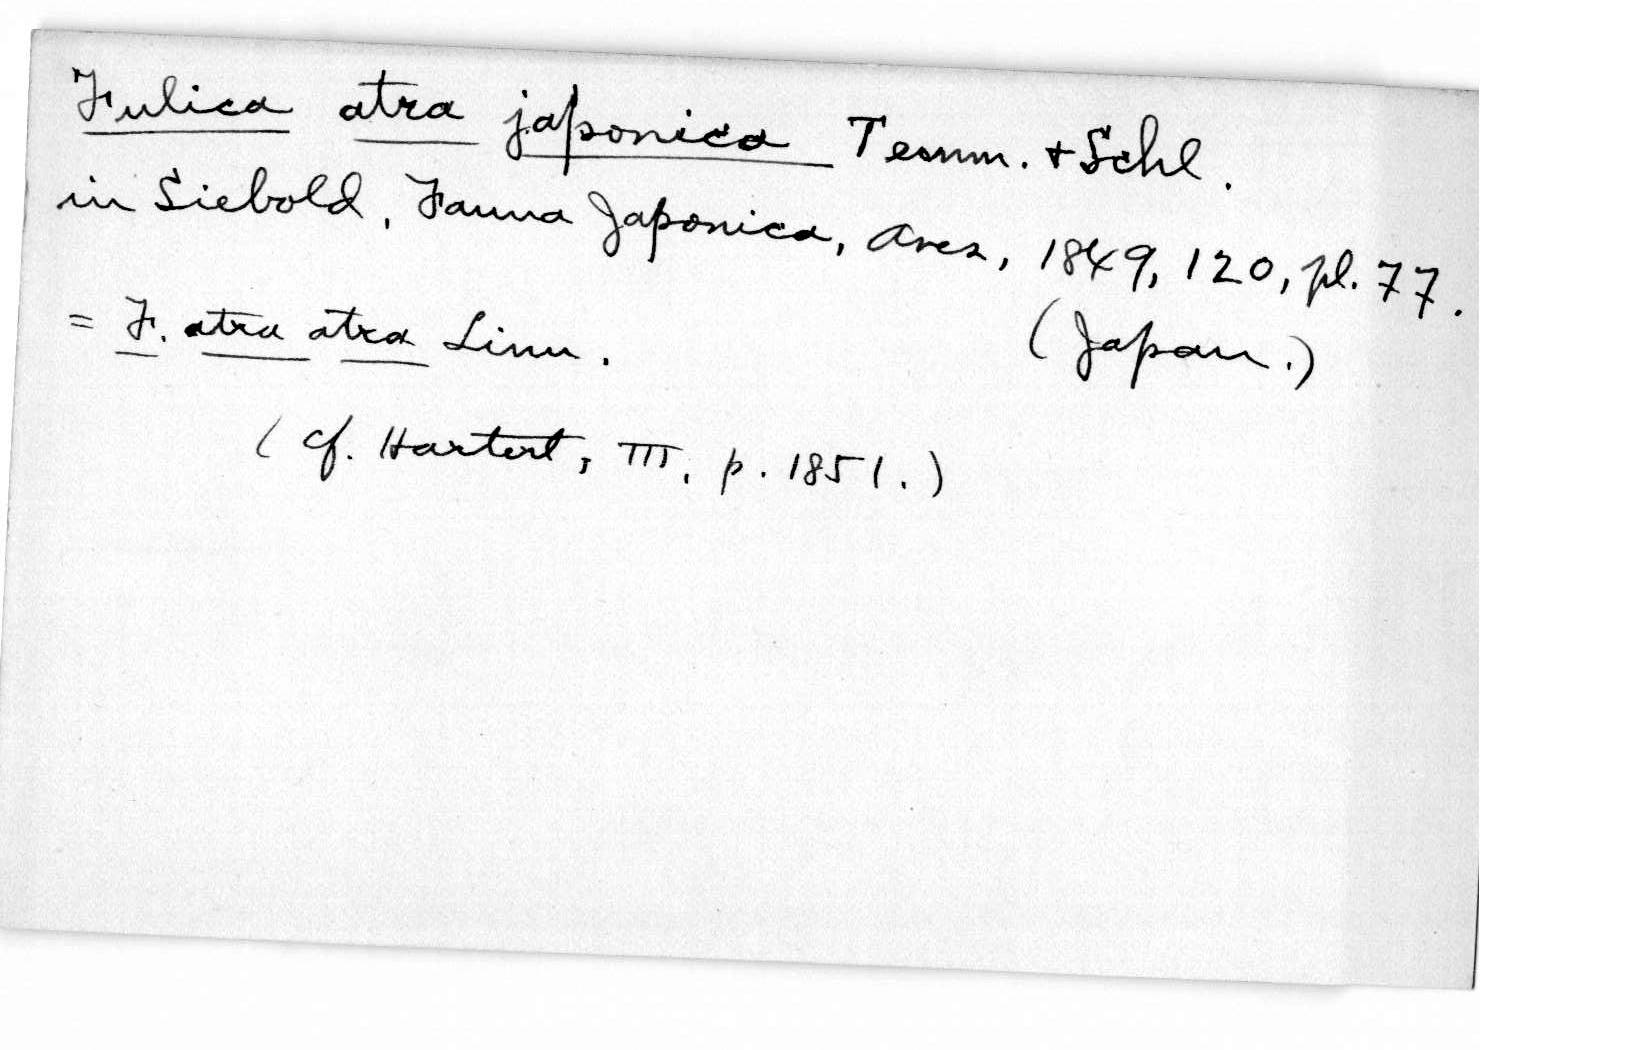 Fulica atra japonica Temm. + Schl.
in Siebold, Fauna Japonica, Aves, 1849, 120, pl. 77.
= F. atra atra Linn. (Japan.)
(cf. Hartert, III, p. 1851.)